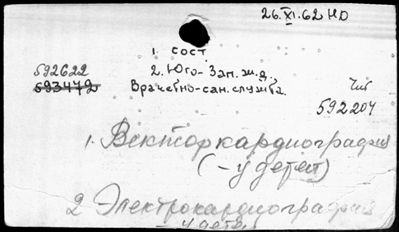 26.XI.62 НО
1. сост.
592622
2. Юго-Зап. ж.д.,
593472
Врачебно-сан. служба.
Чит
592204
1. Векторкардиография
(- у детей)
2 Электрокардиография
- у детей